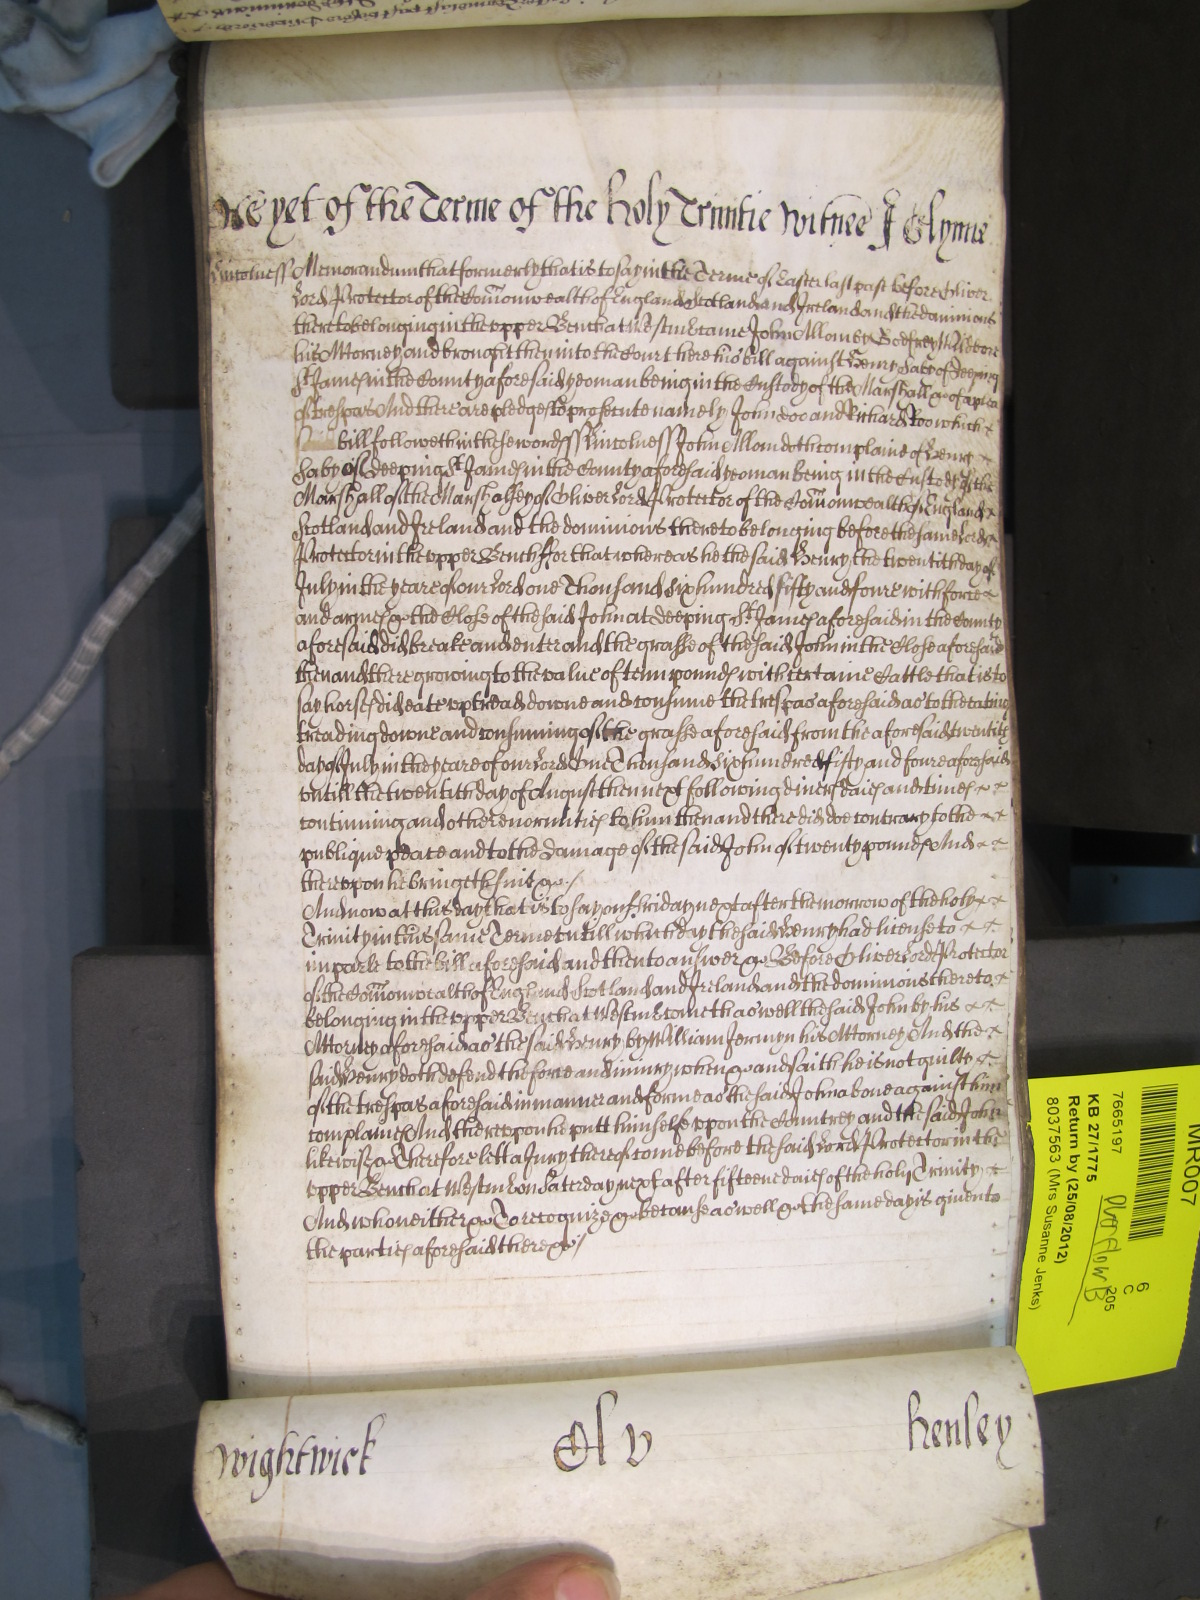 As yet of the Terme of the holy Trinitie Witnes J Glynne
Lincolness Memorandum that formerly that is to say in the Terme of Easter last past before Oliver
Lord Protector of the Comonwealth of England Scotland and Ireland and the dominions
thereto belonging in the upper Bench at Westm came John Allam by Godfrey
his Attorney and brought then into the Court here his bill against Henry Saby of Deeping
St James in the County aforesaid yeoman being in the Custody of the Marshall &c of a plea
of trespas And there are pledges to prosecute namely John Doo and Richard Roo which
bill followeth in these words ss Lincolness John Allam doth complaine of Henry
Saby of Deeping St James in the County aforesaid yeoman being in the Custody of the
Marshall of the Marshalsey of Oliver Lord Protector of the Comonwealth of England
Scotland and Ireland and the dominions thereto belonging before the same Lord
Protector in the upper Bench ffor that whereas he the said Henry the twentith day of
July in the yeare of our Lord one Thousand Six hundred fifty and foure with force
and armes &c the Close of the said John at Deeping St James aforesaid in the County
aforesaid did breake and enter and the grasse of the said John in the Close aforesaid
then and there growing to the value of tenn pounds with certaine Cattle that is to
say horses did eate up tread downe and consume the trespas aforesaid as to the eating
treading downe and consuming of the grasse aforesaid from the aforesaid twentith
day of July in the yeare of our Lord One Thousand Six hundred fifty and foure aforesaid
untill the twentith day of August then next following divers daies and times
continuing and other enormities to him then and there did doe contrary to the
publique peace and to the damage of the said John of twenty pounds And
thereupon he bringeth suit &c /
And now at this day that is to say on ffriday next after the morrow of the holy
Trinity in this same Terme untill which day the said Henry had license to
imparle to the bill aforesaid and then to answer &c Before Oliver Lord Protector
of the Comonwealth of England Scotland and Ireland and the dominions thereto
belonging in the upper Bench at Westm cometh as well the said John by his
Attorney aforesaid as the said Henry by William Jermyn his Attorney And the
said Henry doth defend the force and iniury when &c and saith he is not guilte
of the trespas aforesaid in manner and forme as the said John above against him
complaines And thereupon he putt himselfe upon the Countrey and the said John
likewise &c Therefore lett a Jury thereof come before the said Lord Protector in the
upper Bench at Westm on Saterday next after fifteene daies of the holy Trinity
And who neither &c To recognize &c because as well &c the same day is given to
the parties aforesaid there &c /
Wightwick Ol v Henley
MR007
7665197
KB 27/1775
Return by (25/08/2012)
8037563 (Mrs Susanne Jenks)
Overflow B
205
6
C